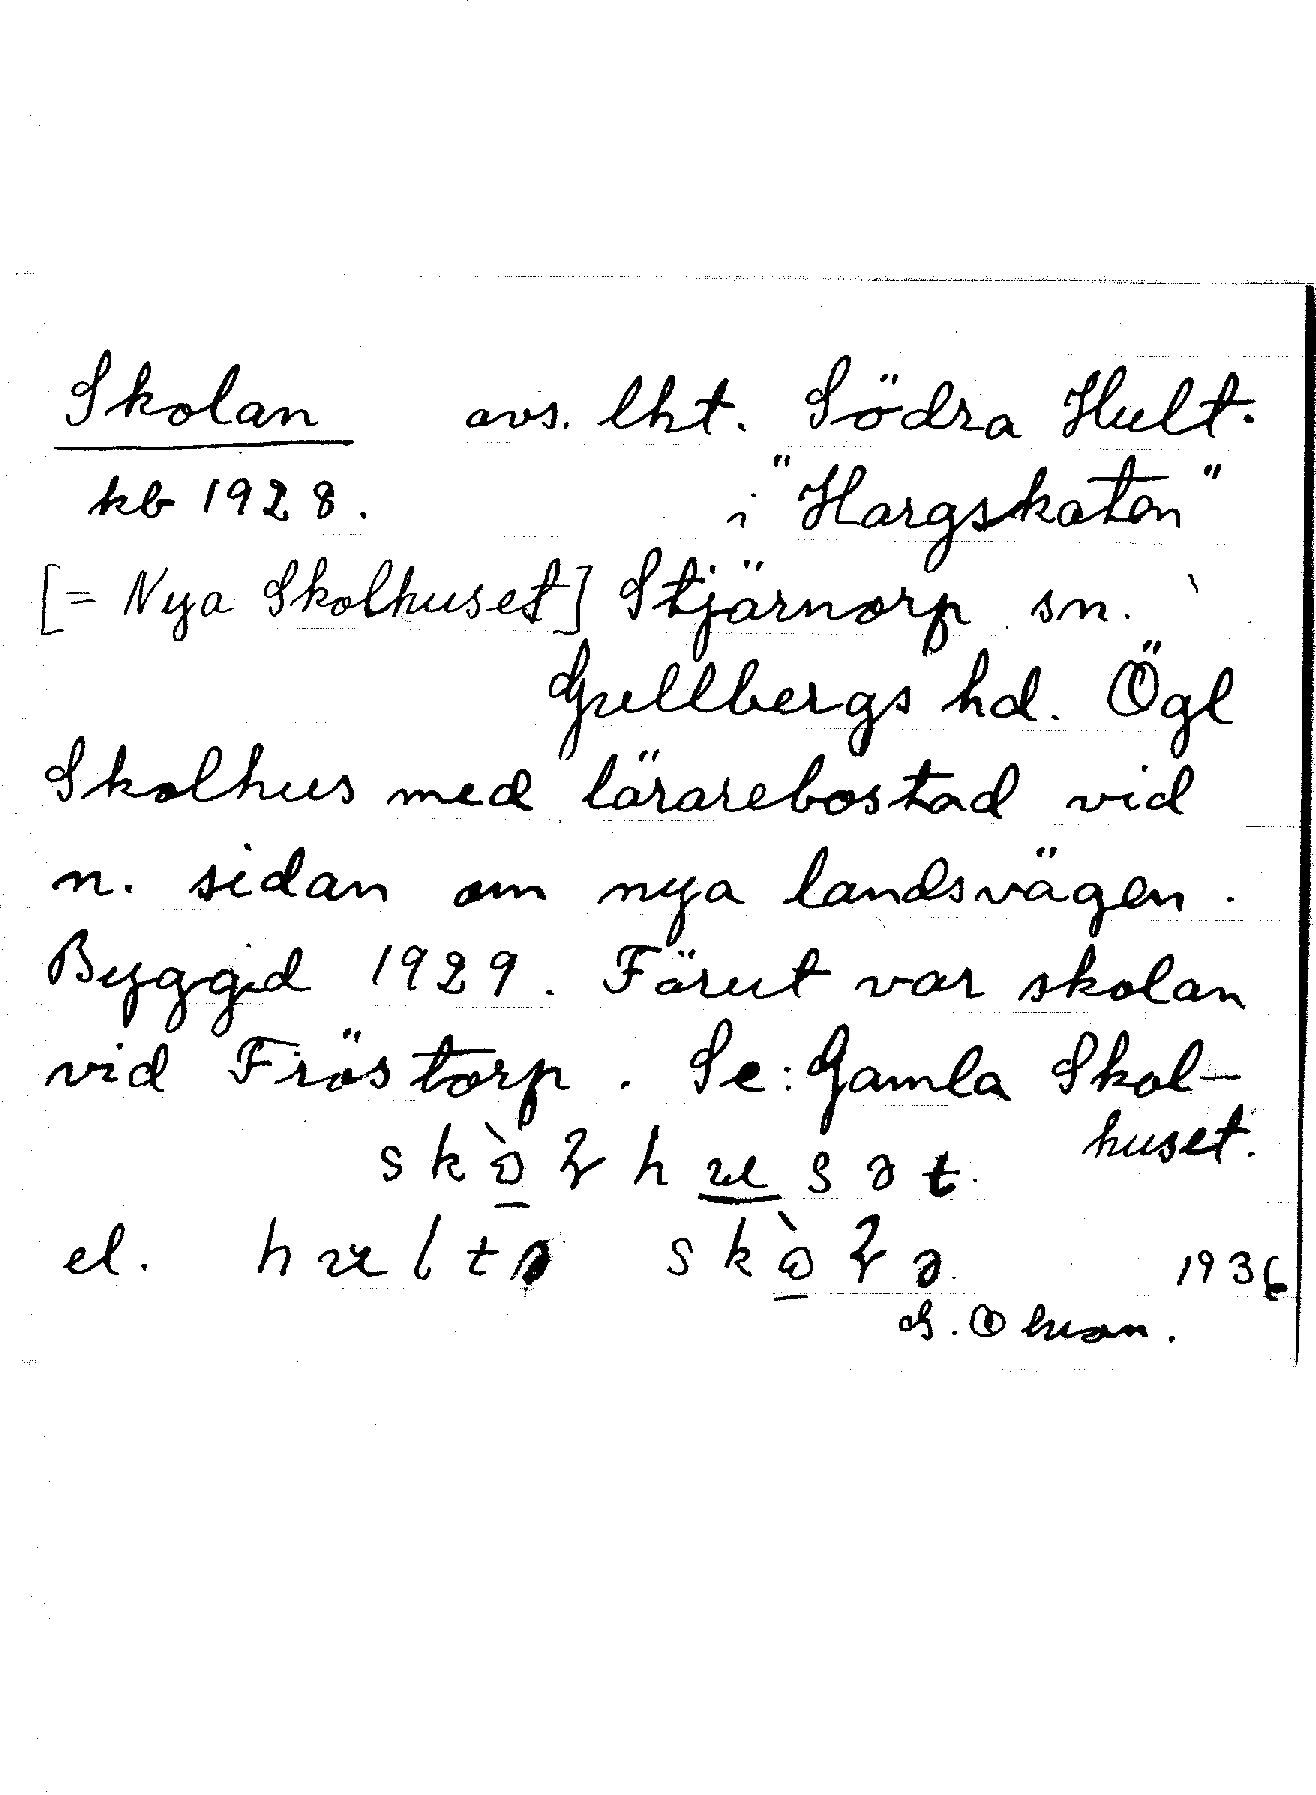 Skolan avs. lht. Södra Hult.
kb 1928. i "Hargskaten"
[= Nya Skolhuset] Stjärnorp sn.
Gullbergs hd. Ögl
Skolhus med lärarebostad vid
n. sidan om nya landsvägen.
Byggd 1929. Förut var skolan
vid Fröstorp. Se: Gamla Skol-
huset.
el. 1936